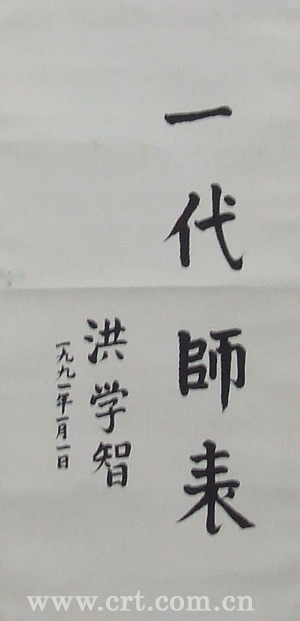 一代師表
洪学智
一九九一年一月一日
www.crt.com.cn